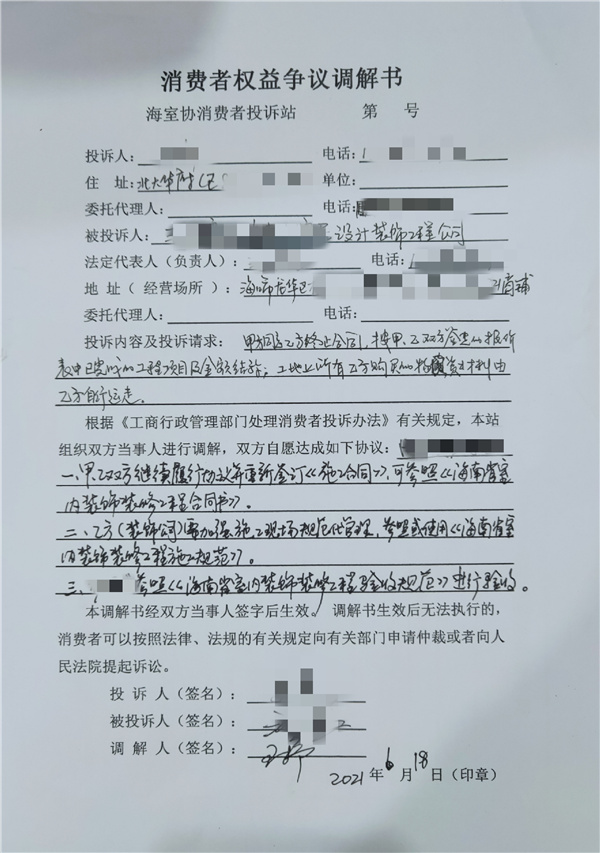 消费者权益争议调解书
海室协消费者投诉站 第 号
投诉人： 电话：1
住 址：北大华府 单位：
委托代理人： 电话：
被投诉人： 设计装饰工程公司
法定代表人（负责人）： 电话：
地 址（ 经营场所 ）：海口市龙华区 商铺
委托代理人： 电话：
投诉内容及投诉请求： 甲方同意乙方终止合同，按甲、乙双方签定的报价
表中已完成的工程项目及金额结算，工地上所有乙方购买的材料由
乙方自行运走。
根据《工商行政管理部门处理消费者投诉办法》有关规定，本站
组织双方当事人进行调解，双方自愿达成如下协议：
一、甲乙双方继续履行协议并重新签订《施工合同》，可参照《海南省室
内装饰装修工程合同书》。
二、乙方（装饰公司）需加强施工现场规范化管理，参照或使用《海南省室
内装饰装修工程施工规范》。
三、 参照《海南省室内装饰装修工程验收规范》进行验收。
本调解书经双方当事人签字后生效。 调解书生效后无法执行的，
消费者可以按照法律、法规的有关规定向有关部门申请仲裁或者向人
民法院提起诉讼。
投 诉 人（签名）：
被投诉人（签名）：
调 解 人（签名）：
2021年 6 月 18 日（印章）